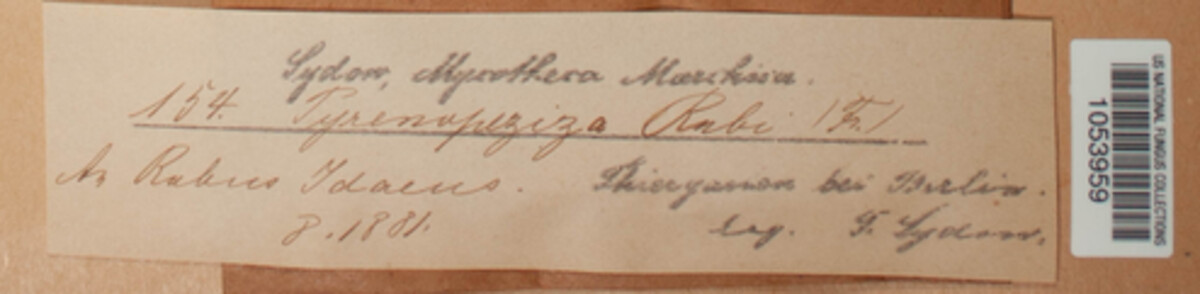 Sydow, Mycotheca Marchica.
154. Pyrenopeziza Rubi (Fr.)
An Rubus Idaeus. Thiergarten bei Berlin.
8.1881. leg. P. Sydow.
US NATIONAL FUNGUS COLLECTIONS
1053959